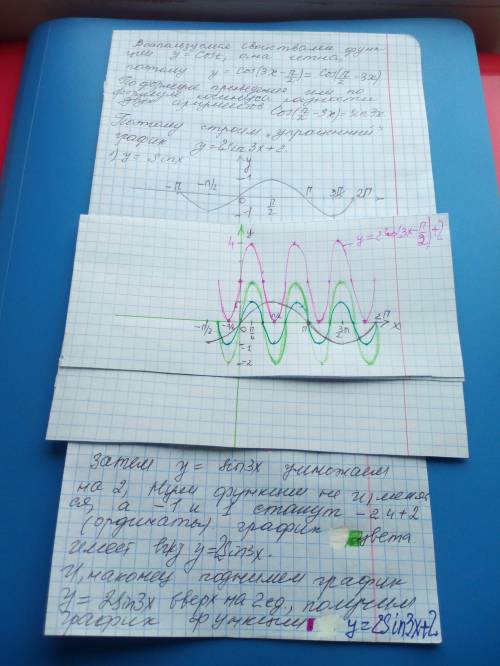 Воспользуемся свойствами функ-
ции y=cosx, она четна,
поэтому y = cos(3x-π/2)=cos(π/2-3x)
По формуле приведения или по
формуле косинуса разности
двух аргументов cos(π/2-3x)=sin3x
Поэтому строим "упрощенный"
график y=2sin3x+2.
1) y = sinx
y
1
-π -π/2 0 π/2 π 3π/2 2π
-1
y
4
y=2cos(3x-π/2)+2
-π/2 0 π/6 π 3π/2 2π x
-1
-2
Затем y = sin3x умножаем
на 2, Нули функции не изменя
ся, а -1 и 1 станут -2 и +2
(ординаты) график цвета
имеет вид y=2sin3x.
И, наконец поднимем график
y = 2sin3x вверх на 2 ед., получим
график функции y=2sin3x+2